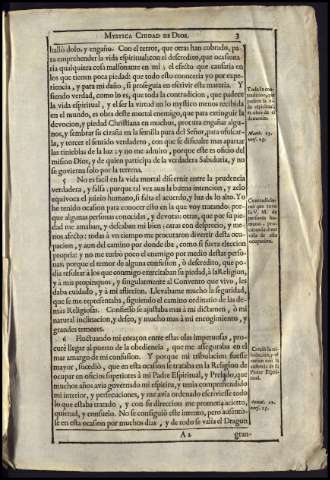 MYSTICA CIUDAD DE DIOS.
3
hallò dolo, y engaño. Con el terror, que otras han cobrado, pa-
ra emprehender la vida espiritual; con el descredito, que ocasiona-
ria qualquiera cosa malsonante en mi; el efecto que causaria en
los que tienen poca piedad que todo esto conoceria yo por expe-
riencia, y para mi daño, si proseguia en escrivir esta materia. Y
siendo verdad, como lo es, que toda la contradicion, que padece
la vida espiritual, y el ser la virtud en lo mystico menos recibida
en el mundo, es obra deste mortal enemigo, que para extinguir la
devocion, y piedad Christiana en muchos, procura engañar algu-
nos, y sembrar su cizaña en la semilla pura del Señor, para ofuscar-
la, y torcer el sentido verdadero, con que se dificulte mas apartar
las tinieblas de la luz: y no me admiro, porque este es oficio del
mismo Dios, y de quien participa de la verdadera Sabiduria, y no
se govierna solo por la terrena.
5 No es facil en la vida mortal discernir entre la prudencia
verdadera, y falsa; porque tal vez aun la buena intencion, y zelo
equivoca el juizio humano, si falta el acuerdo, y luz de lo alto. Yo
he tenido ocasion para conocer esto en la que voy tratando: por-
que algunas personas conocidas, y devotas; otras, que por su pie-
dad me amavan, y deseavan mi bien; otras con desprecio, y me-
nos afecto; todas à vn tiempo me procuravan divertir desta ocu-
pacion, y aun del camino por donde iba, como si fuera eleccion
propria: y no me turbò poco el enemigo por medio destas perso-
nas: porque el temor de alguna confusion, ò descredito, que po-
dia resultar à los que conmigo exercitaban su piedad, à la Religion,
y à mis propinquos, y singularmente al Convento que vivo, les
daba cuidado, y à mi afliccion. Llevabame mucho la seguridad,
que se me representaba, siguiendo el camino ordinario de las de-
màs Religiosas.
natural inclinacion, y deseo, y mucho mas à mi encogimiento, y
grandes temores.
6 Fluctuando mi coraçon entre estas olas impetuosas, pro-
curè llegar al puerto de la obediencia, que me aseguraba en el
mar amargo de mi confusion. Y porque mi tribulacion fuesse
mayor, sucediò, que en esta ocasion se trataba en la Religion de
ocupar en oficios superiores à mi Padre Espiritual, y Prelado, que
muchos años avia governado mi espiritu, y tenia comprehendido
mi interior, y persecuciones, y me avia ordenado escriviesse todo
lo que estaba tratado, y con su direccion me prometia acierto,
quietud, y consuelo. No se consiguiò este intento, pero ausento-
se en esta ocasion por muchos dias, y de todo se valia el Dragon
A 2
gran-
Matth. 13.
vers. 25.